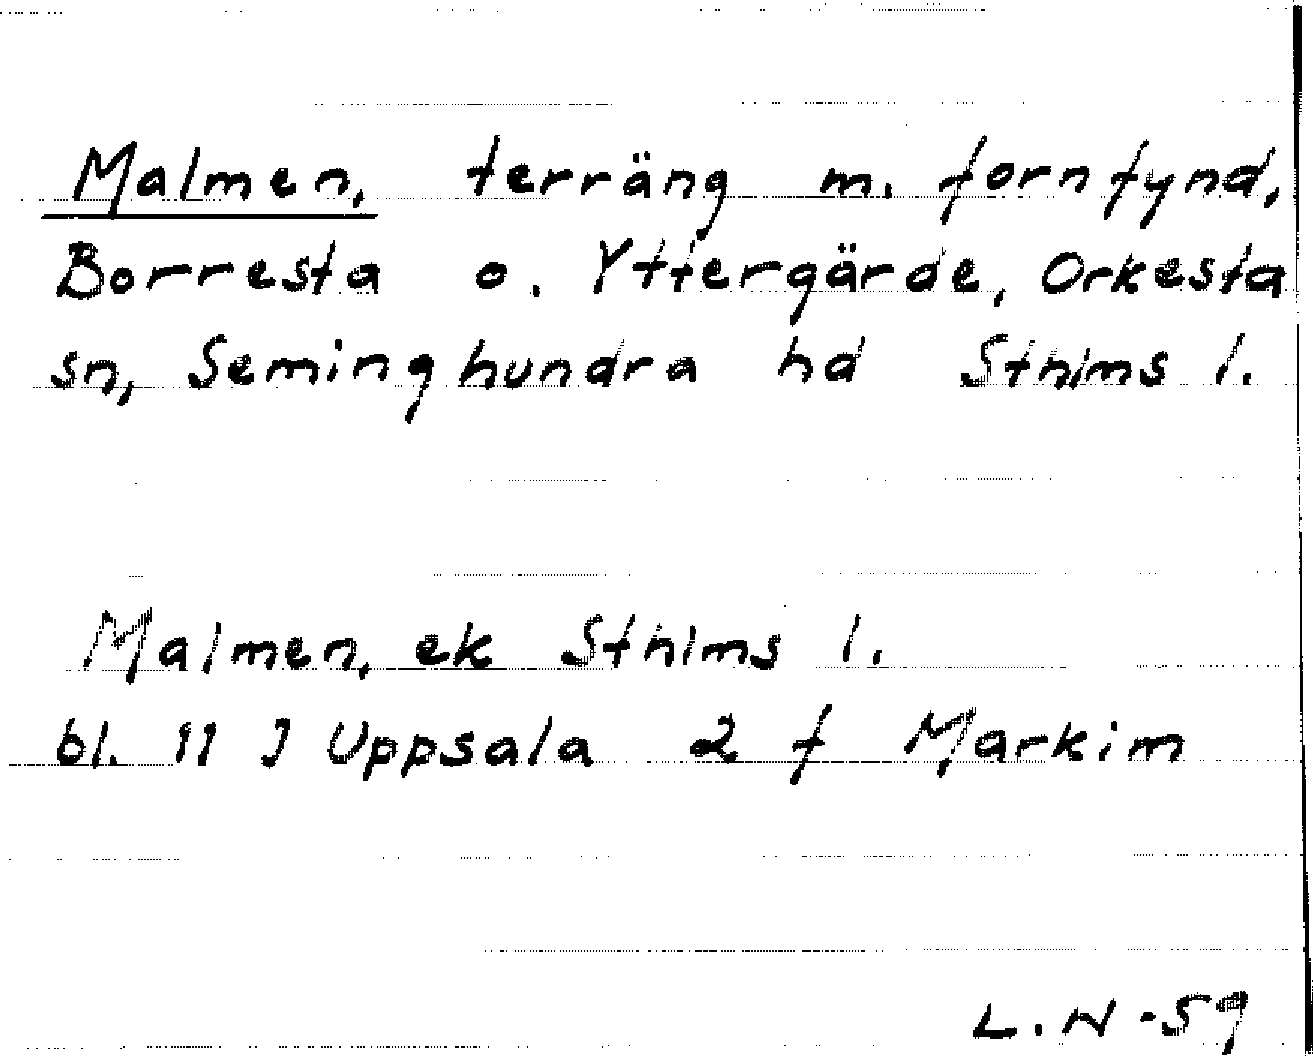 Malmen, terräng m. fornfynd,
Borresta o. Yttergärde, Orkesta
sn, Seminghundra hd Sthlms l.
Malmen, ek Sthlms l.
bl. 11 I Uppsala 2 f Markim
L.N-59